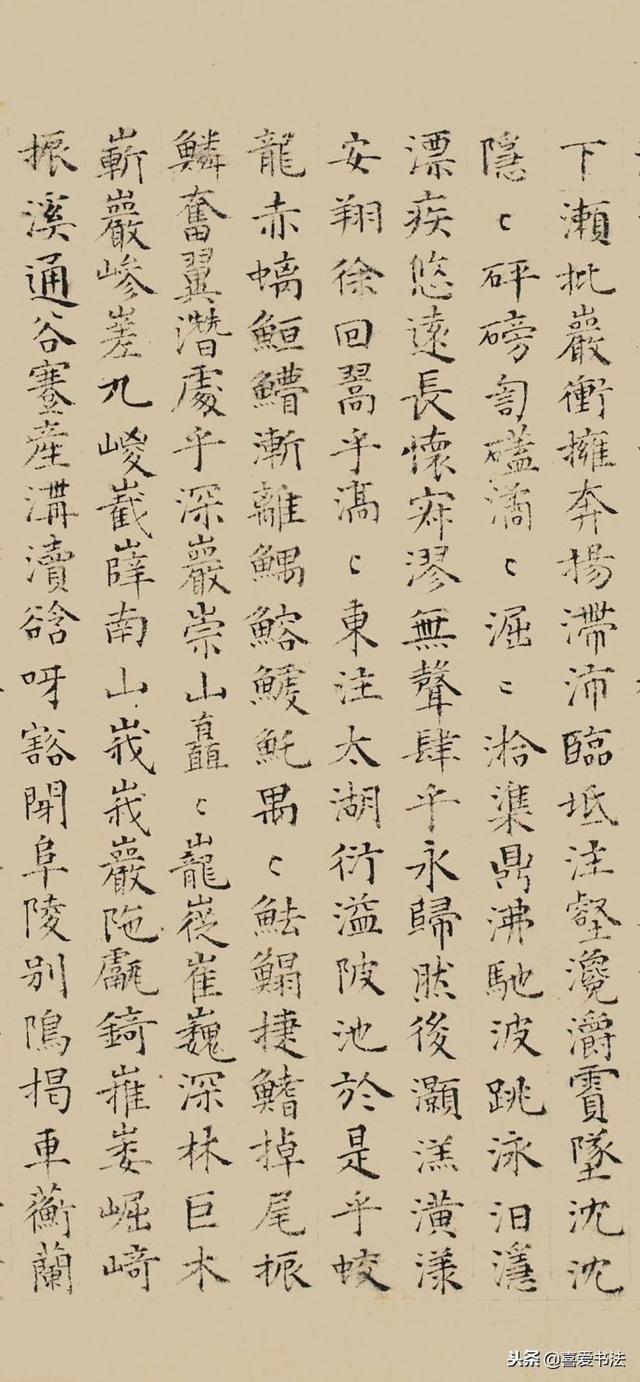 下瀨批巖衝擁奔揚滯沛臨坻注壑瀺灂霣墜沈沈
隱〻砰磅訇礚潏〻淈〻湁潗鼎沸馳波跳沫汩
漂疾悠遠長懷寂漻無聲肆乎永歸然後灝溔潢漾
安翔徐回翯乎滈〻東注太湖衍溢陂池於是乎蛟
龍赤螭䱭䲛漸離鰅鰫鰬魠禺〻魼鰨揵鰭掉尾振
鱗奮翼潛處乎深巖崇山矗〻巃嵷崔巍深林巨木
嶄巖嵾嵳九嵕嶻嶭南山峩峩巖陁甗錡嶊崣崛崎
振溪通谷蹇產溝瀆谽呀豁閉阜陵别隝揭車蘅蘭
头条 @喜爱书法